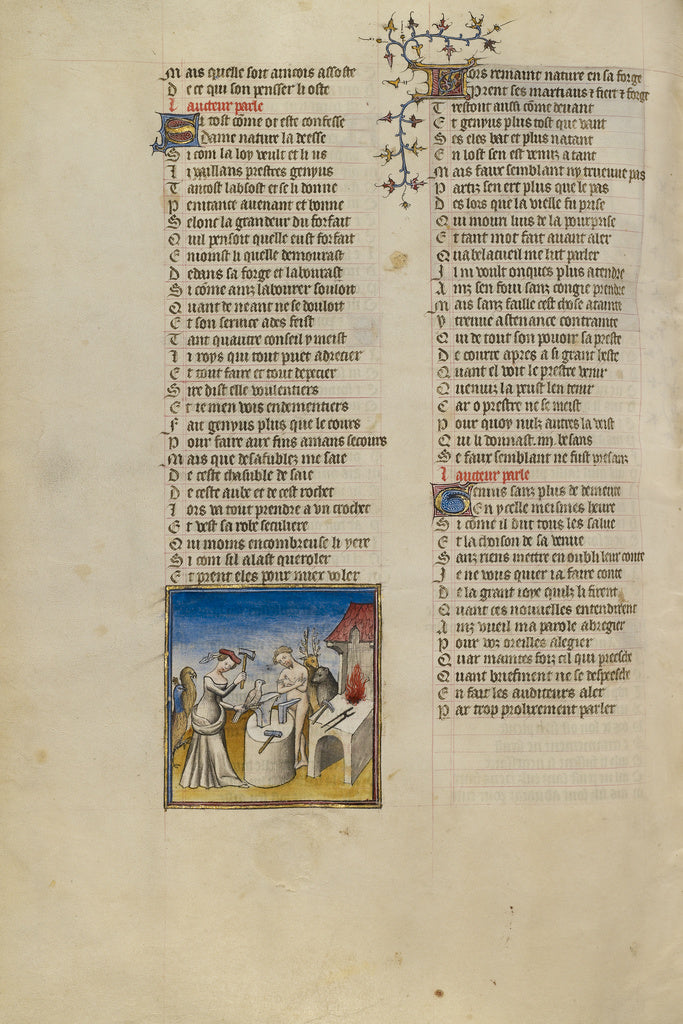 Mais quelle soit aincois assoste
De ce qui son pensser li oste
Laucteur parle
Si tost cōme ot este confesse
Dame nature la deesse
Si com la loy veult et li us
Li vaillans prestres genyus
Tantost labsost et se li donne
Penitance avenant et bonne
Selonc la grandeur du forfait
Quil pensoit quelle eust forfait
Enioinst li quelle demourast
Dedans sa forge et labourast
Si cōme ainz labourer souloit
Quant de neant ne se douloit
Et son service ades feist
Tant quautre conseil y meist
Li roys qui tout puet adrecier
Et tout faire et tout depecier
Sire dist elle voulentiers
Et ie men vois endementiers
Fait genyus plus que le cours
Pour faire aux fins amans secours
Mais que desafublez me saie
De ceste chasuble de saie
De ceste aube et de cest rochet
Lors va tout prendre a un crochet
Et vest sa robe seculiere
Qui moins encombreuse li yere
Si com sil alast queroler
Et prent eles pour miex voler
Lors remaint nature en sa forge
Prent ses martiaus ⁊ fiert ⁊ forge
Trestout aussi cōme devant
Et genyus plus tost que vant
Ses eles bat et plus natant
En lost sen est venuz atant
Mais faux semblant ny trueuve pas
Partiz sen ert plus que le pas
Des lors que la vielle fu prise
Qui mouri luis de la pourprise
Et tant mot fait avant aler
Qua belacueil me lut parler
Il ni voult onques plus atendre
Ainz sen foui sanz congie prendre
Mais sanz faille cest chose atainte
Y treuve astenance contrainte
Qui de tout son pouoir sapreste
De courre apres a si grant heste
Quant el voit le prestre venir
Quenuiz la peust len tenir
Car o prestre ne se meist
Pour quoy nulz autres la veist
Qui li donnast .iiii. besans
Se faux semblant ne fust presanz
Laucteur parle
Genius sanz plus de demeure
En ycelle meismes heure
Si cōme il dut tous les salue
Et lachoison de sa venue
Sanz riens mettre en oubli leur conte
Je ne vous quier ia faire conte
De la grant ioye quilz li firent
Quant ces nouvelles entendirent
Ainz vueil ma parole abregier
Pour voz oreilles alegier
Quar maintes foiz cil qui preesche
Quant briefment ne se despeesche
En fait les auditeurs aler
Par trop prolixement parler